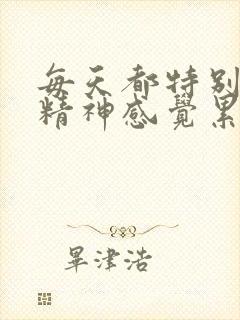 每天都特别
精神感覺累
畢津浩